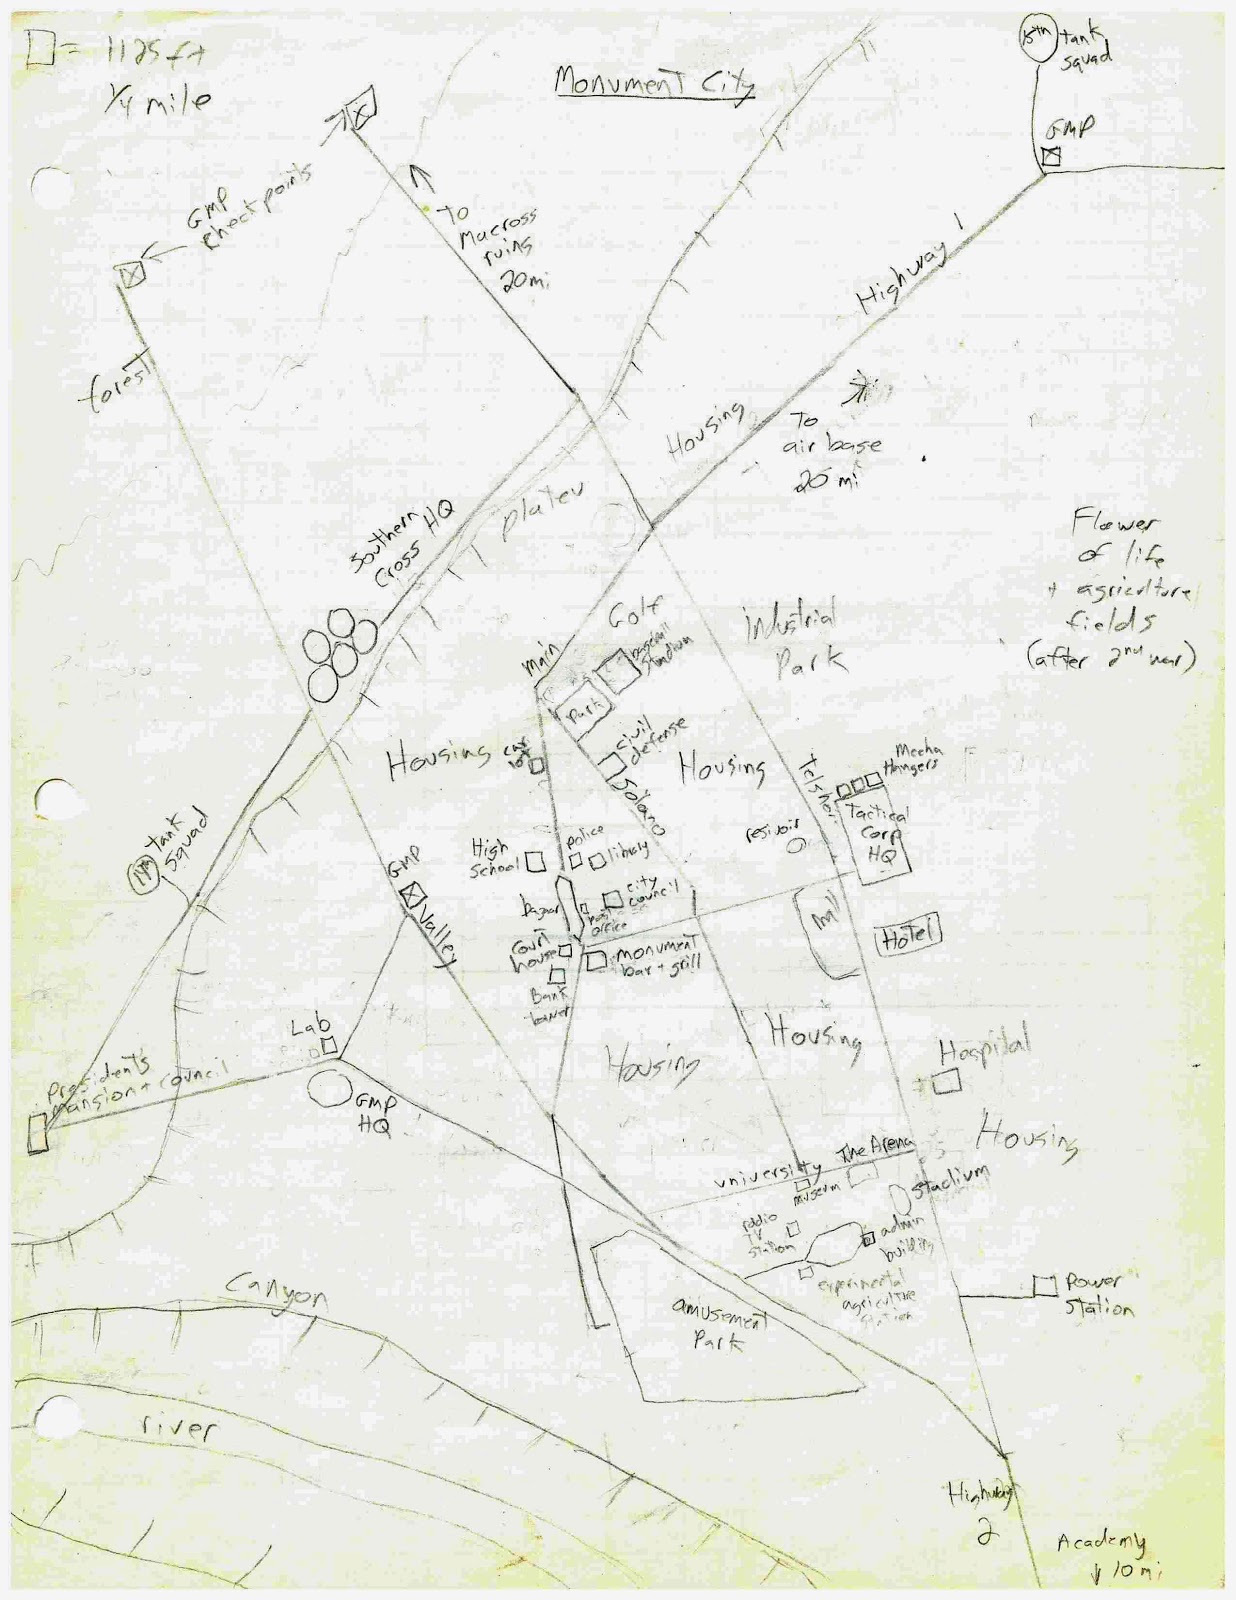 □ = 1125 ft
1/4 mile
Monument City
15th
tank
squad
GMP
GMP
checkpoints
To
Macross
ruins
20mi
Highway 1
forest
Housing
To
air base
20 mi
Southern
Cross HQ
platev
Flower
of life
+ agriculture
fields
(after 2nd war)
Golf
main
baseball
stadium
Park
industrial
Park
Housing
car
lot
civil
defense
Solano
Housing
Mecha
Hangers
Tactical
Corp
HQ
resivoir
tank
squad
High
School
police
library
GMP
Valley
bazaar
city
council
post
office
court
house
monument
bar + grill
Bank
tower
mall
Hotel
Lab
President's
mansion + council
GMP
HQ
Housing
Housing
Hospital
Housing
university
museum
The Arena
Stadium
radio
TV
station
admin
building
experimental
agriculture
station
Power
Station
amusement
Park
Canyon
river
Highway
2
Academy
↓ 10 mi